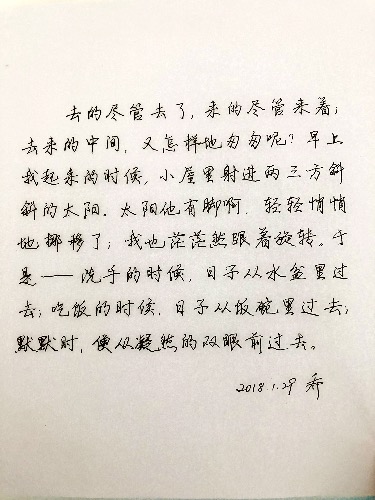 去的尽管去了，来的尽管来着；
去来的中间，又怎样地匆匆呢？早上
我起来的时候，小屋里射进两三方斜
斜的太阳。太阳他有脚啊，轻轻悄悄
地挪移了；我也茫茫然跟着旋转。于
是——洗手的时候，日子从水盆里过
去；吃饭的时候，日子从饭碗里过去；
默默时，便从凝然的双眼前过去。
2018.1.29 乔